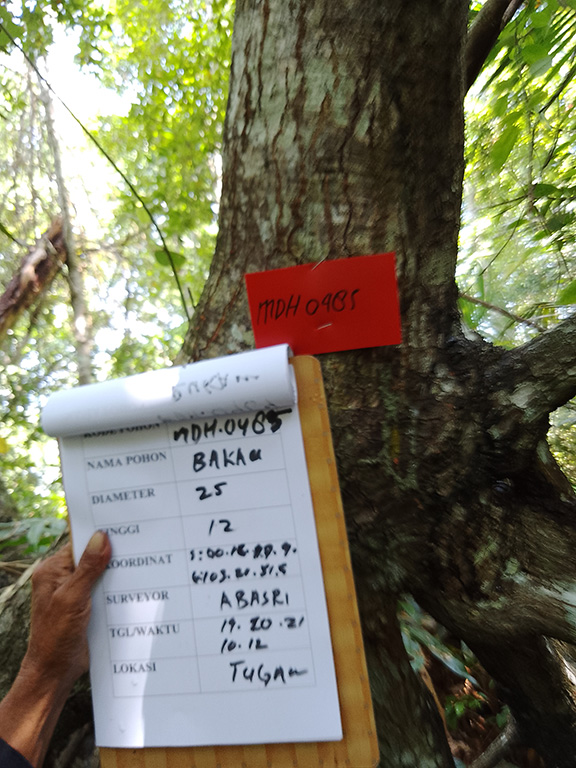 MDH 0485
KODE POHON MDH.0485
NAMA POHON BAKAU
DIAMETER 25
TINGGI 12
KOORDINAT
SURVEYOR ABASRI
TGL/WAKTU 19.20.21
10.12
LOKASI TUGAU